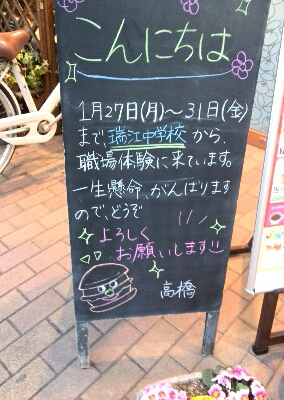 こんにちは
1月27日(月)～31日(金)
まで、瑞江中学校から、
職場体験に来ています。
一生懸命、がんばります
ので、どうぞ
よろしく
お願いします
高橋